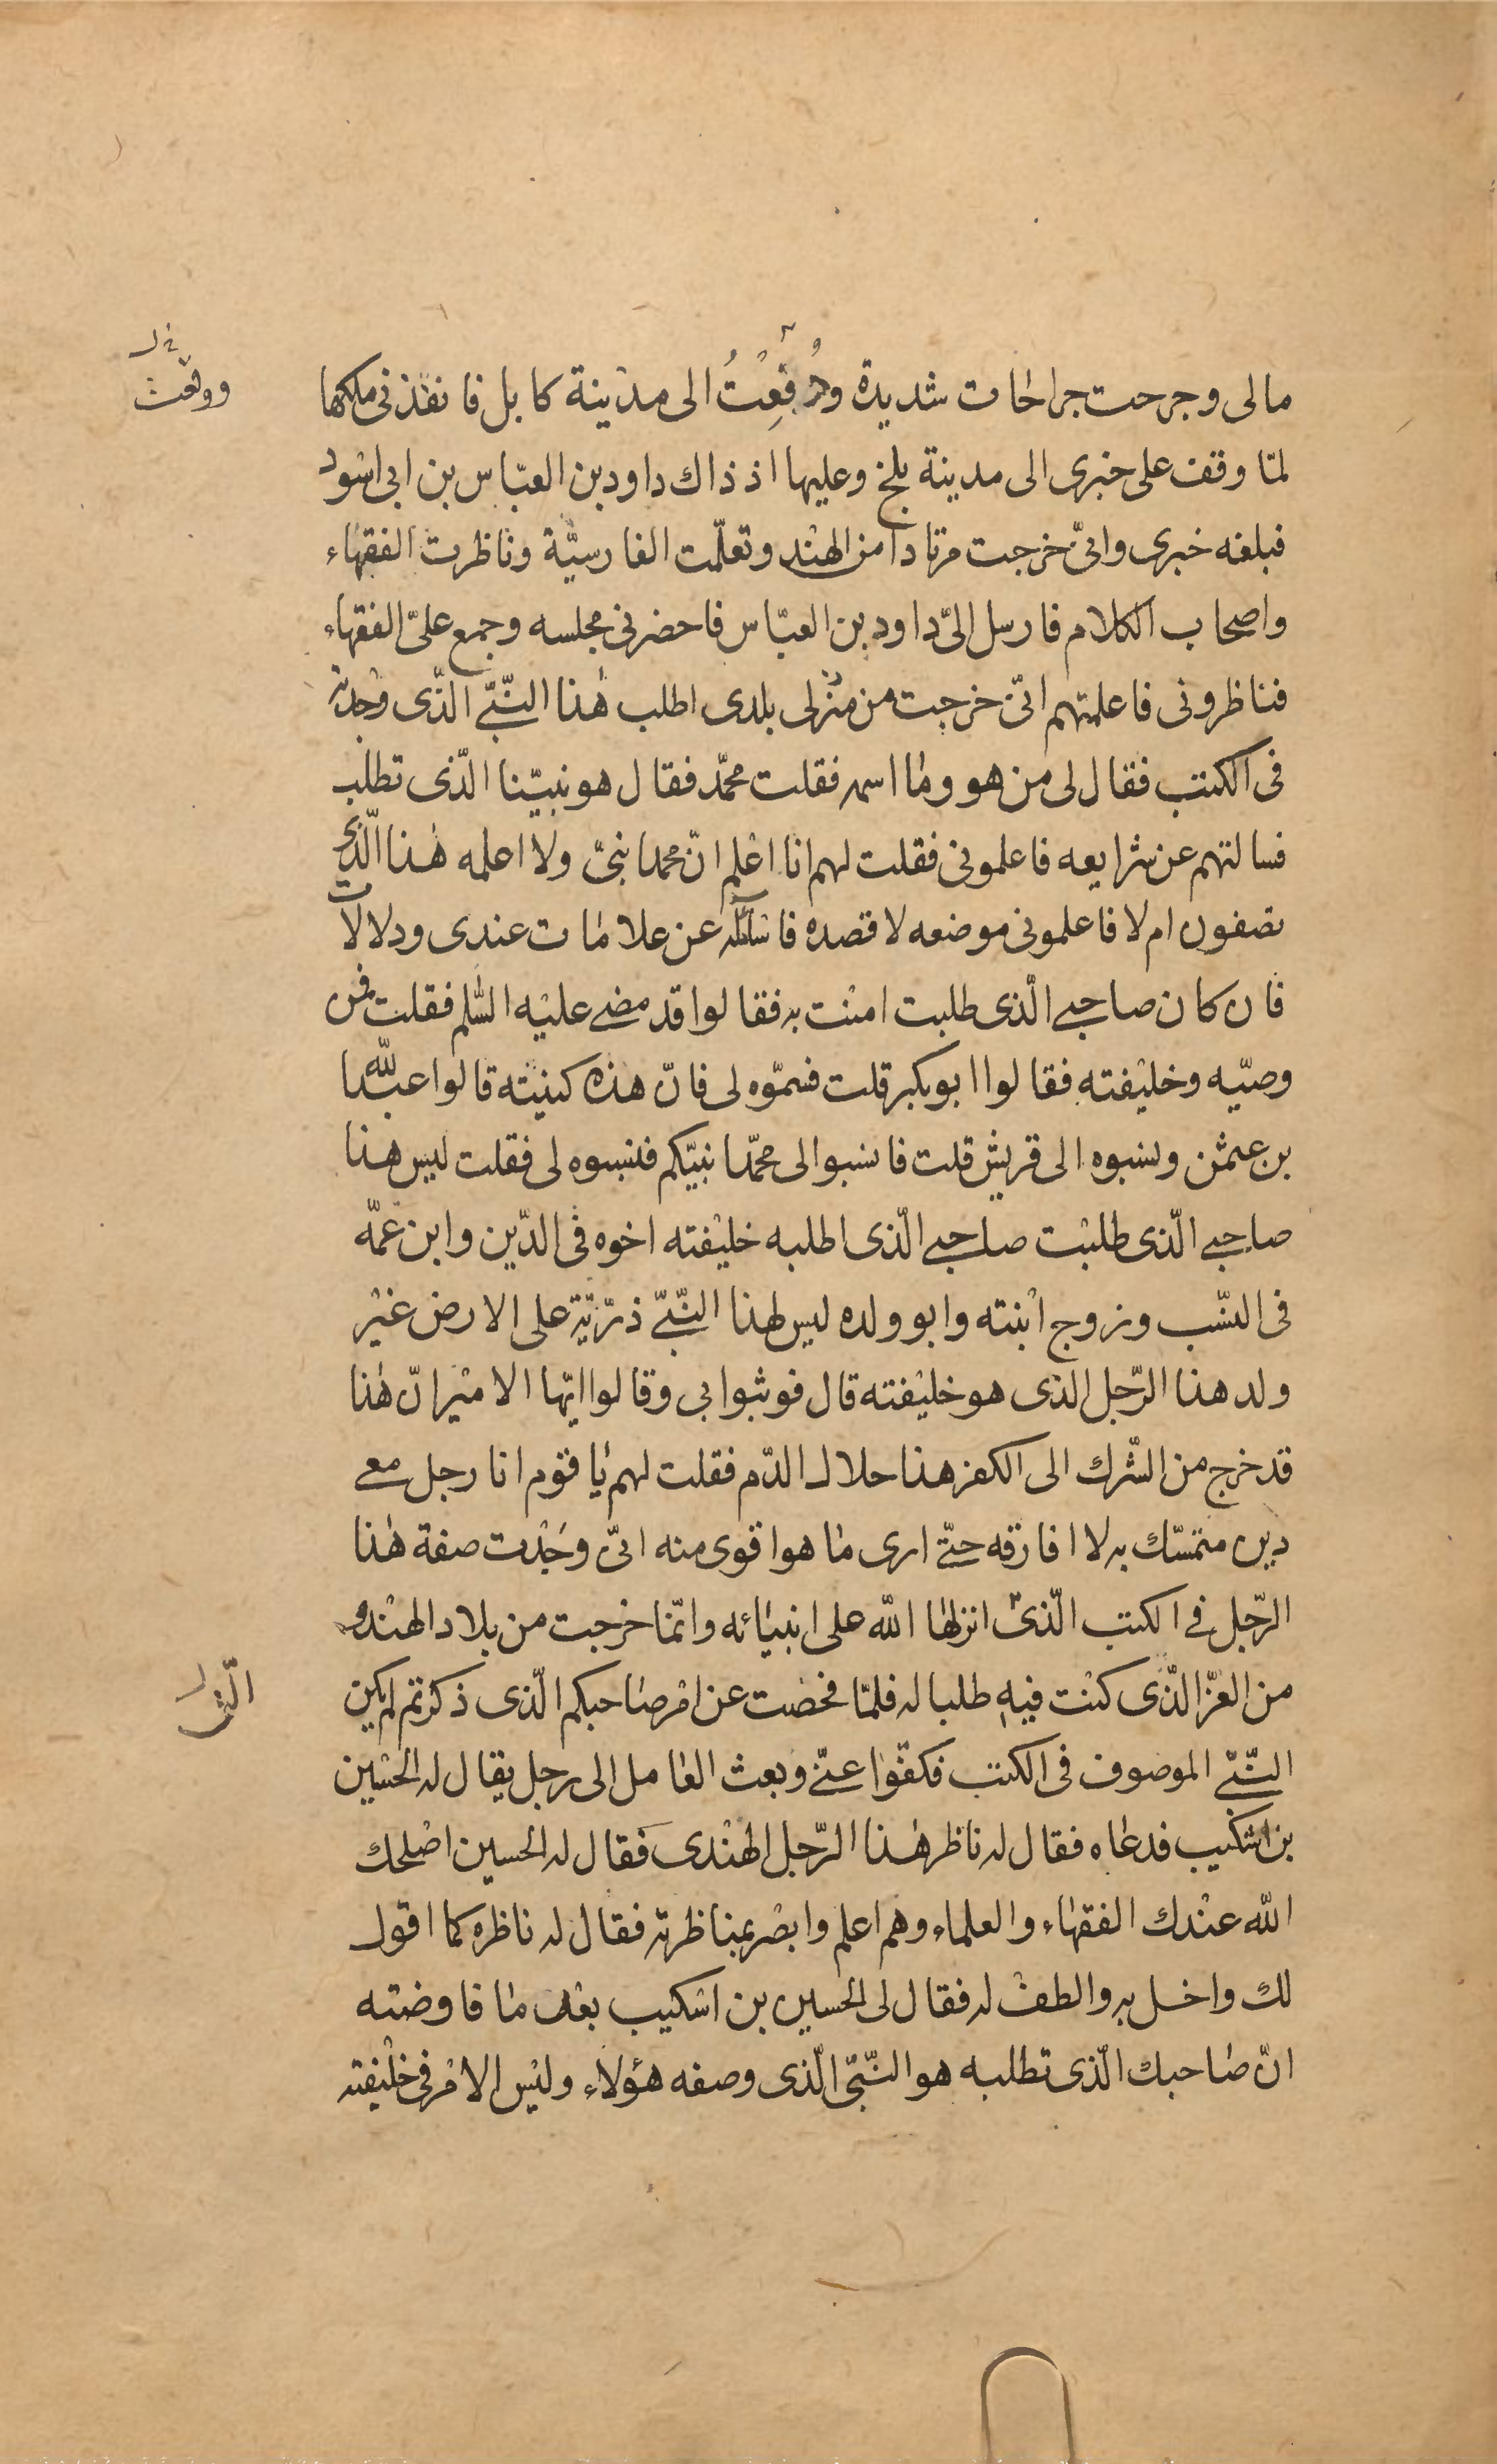 مالى وجرحت جراحات شديدة ودُفِعْتُ الى مدينة كابل فانفذنى ملكها
لمّا وقف على خبرى الى مدينة بلخ وعليها اذ ذاك داود بن العبّاس بن ابى اسود
فبلغه خبرى وانّى خرجت مرتادا من الهند وتعلّمت الفارسيّة وناظرت الفقهاء
واصحاب الكلام فارسل الىّ داود بن العبّاس فاحضرنى مجلسه وجمع علىّ الفقهاء
فناظرونى فاعلمتهم انّى خرجت من منزلى بلدى اطلب هذا النّبىّ الّذى وجدته
فى الكتب فقال لى من هو وما اسمه فقلت محمّد فقال هو نبيّنا الّذى تطلب
فسالتهم عن شرايعه فاعلمونى فقلت لهم انا اعلم انّ محمدا نبىّ ولا اعلمه هذا الّذى
تصفون ام لا فاعلمونى موضعه لاقصده فاسائله عن علامات عندى ودلالات
فان كان صاحبى الّذى طلبت امنت به فقالوا قد مضى عليه السّلم فقلت فمن
وصيّه وخليفته فقالوا ابو بكر قلت فسمّوه لى فانّ هذه كنيته قالوا عبد الله
بن عثمن ونسبوه الى قريش قلت فانسبوا لى محمّدا نبيّكم فنسبوه لى فقلت ليس هذا
صاحبى الّذى طلبت صاحبى الّذى اطلبه خليفته اخوه فى الدّين وابن عمّه
فى النّسب وزوج ابنته وابو ولده ليس لهذا النّبىّ ذرّيّة على الارض غير
ولد هذا الرّجل الذى هو خليفته قال فوثبوا بى وقالوا ايّها الامير انّ هذا
قد خرج من الشّرك الى الكفر هذا حلال الدّم فقلت لهم يا قوم انا رجل معى
دين متمسّك به لا افارقه حتّى ارى ما هو اقوى منه انّى وجدت صفة هذا
الرّجل فى الكتب الّذى انزلها الله على انبيائه وانّما خرجت من بلاد الهند و
من العزّ الّذى كنت فيه طلبا له فلمّا فحصت عن امر صاحبكم الّذى ذكرتم لم يكن
النّبىّ الموصوف فى الكتب فكفّوا عنّى وبعث العامل الى رجل يقال له الحسين
بن اشكيب فدعاه فقال له ناظر هذا الرّجل الهندى فقال له الحسين اصلحك
الله عندك الفقهاء والعلماء وهم اعلم وابصر بمناظرته فقال له ناظره كما اقول
لك واخل به والطف له فقال لى الحسين بن اشكيب بعد ما فاوضته
انّ صاحبك الّذى تطلبه هو النّبىّ الّذى وصفه هؤلاء وليس الامر فى خليفته